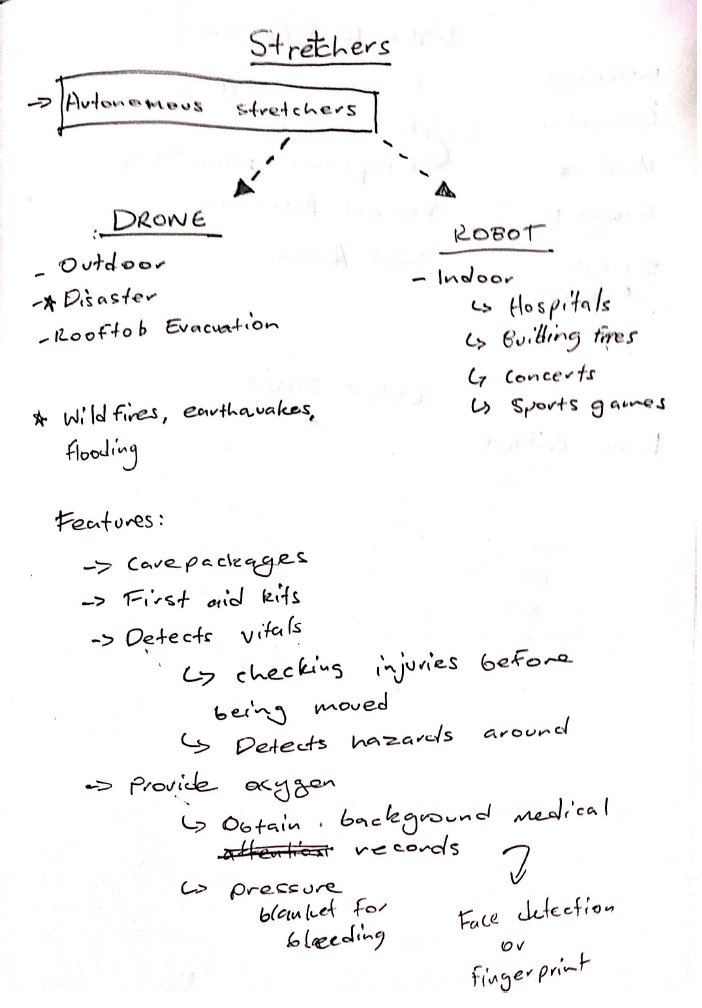 Stretchers
→ Autonomous stretchers
DRONE
- Outdoor
-* Disaster
- Rooftob Evacuation
* Wild fires, earthavakes,
flooding
ROBOT
- Indoor
↳ Hospitals
↳ Builling fires
↳ Concerts
↳ Sports games
Features:
→ Care packages
→ First aid kits
→ Detects vitals
↳ checking injuries before
being moved
↳ Detects hazards around
→ Provide oxygen
↳ Obtain background medical
attention records
↳ pressure
blanket for
bleeding
Face detection
or
fingerprint